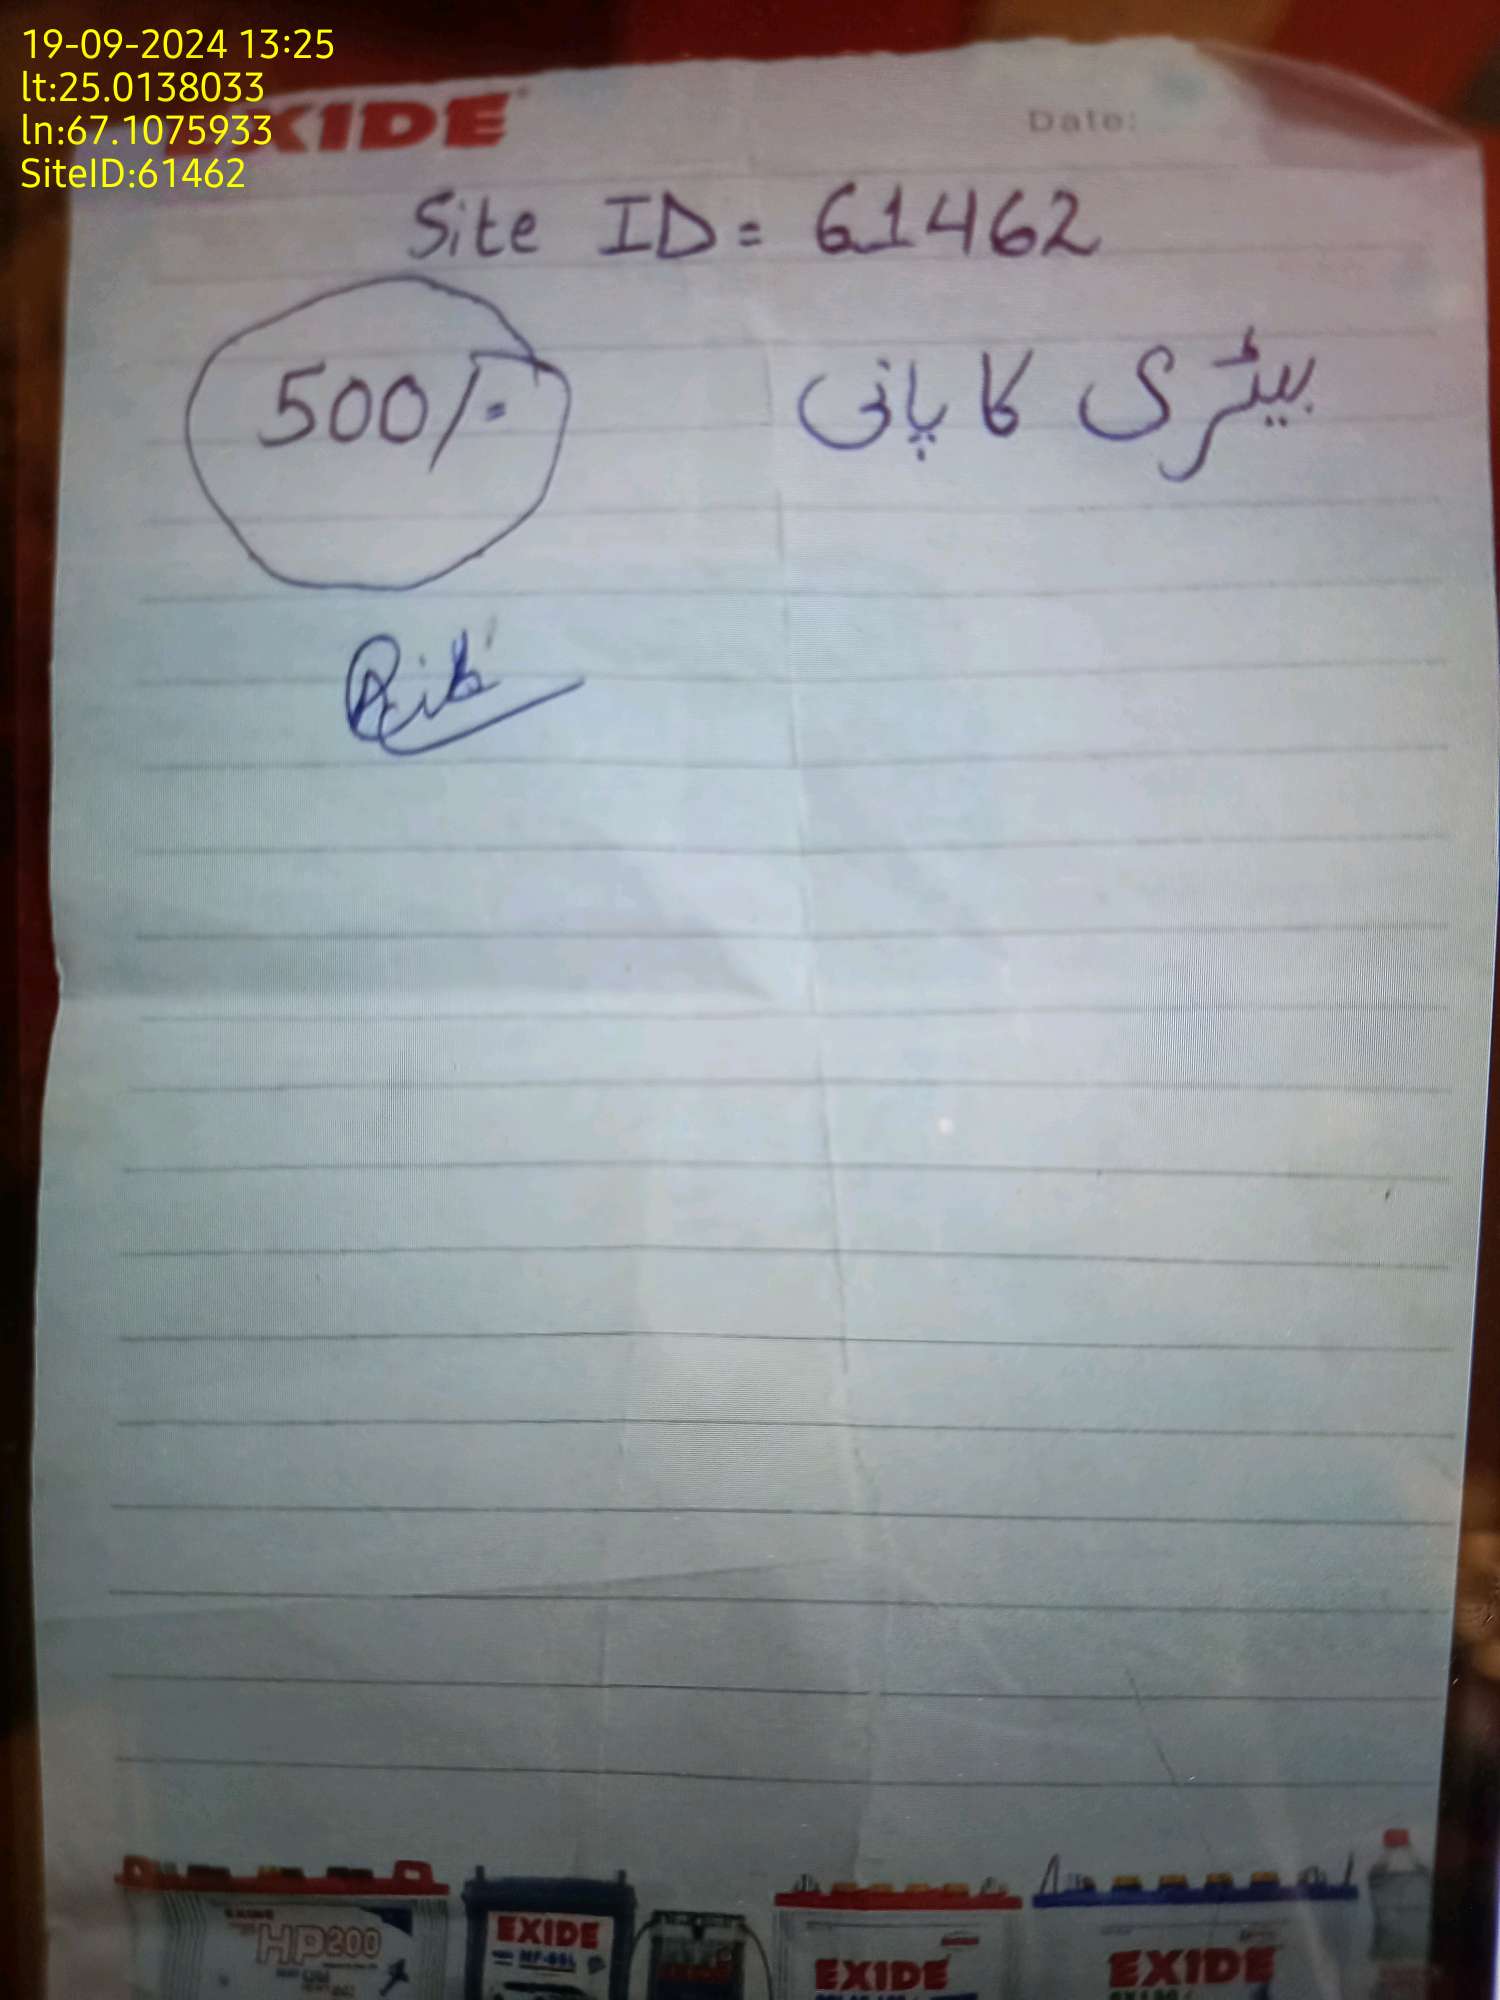 19-09-2024 13:25
lt:25.0138033
ln:67.1075933
SiteID:61462
EXIDE
Date:
Site ID = 61462
500/=
بیٹری کا پانی
EXIDE
HP200
EXIDE
EXIDE
EXIDE